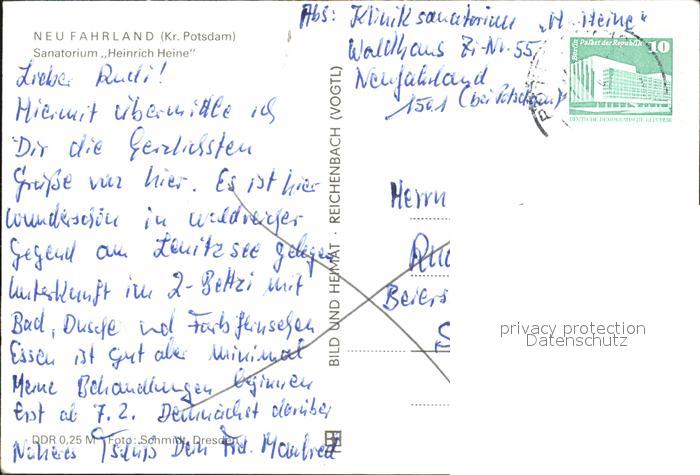 NEU FAHRLAND (Kr. Potsdam)
Sanatorium „Heinrich Heine"
Abs: Kliniksanatorium „H. Heine"
Waldhaus Zi-Nr. 55
Neufahrland
1501 (bei Potsdam)
Berlin Palast der Republik 10
DEUTSCHE DEMOKRATISCHE REPUBLIK
Lieber Rudi!
Hiermit übermittle ich
Dir die herzlichsten
Grüße von hier. Es ist hier
wunderschön in waldreicher
Gegend am Lenitzsee gelegen
Unterkunft im 2-Bettzi mit
Bad, Dusche und Farbfernsehen
Essen ist gut aber minimal
Meine Behandlungen beginnen
Erst ab 7.2. Demnächst darüber
Näheres Tschüß Dein Frd. Manfred
DDR 0,25 M Foto: Schmidt, Dresden
BILD UND HEIMAT · REICHENBACH (VOGTL)
Herrn
Beiers
privacy protection
Datenschutz